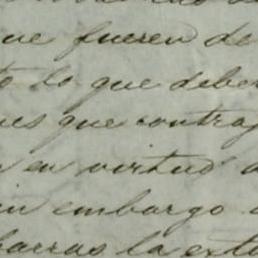 que fueren de
to lo que deber
ues que contra
en virtud
in embargo
barras la exte